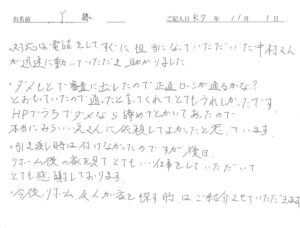 お名前 Y 様 ご記入日 R7 年 11 月 1 日
・対応は電話をしてすぐに、担当になっていただいた中村さん
が迅速に動いていただき助かりました
・ダメもとで審査に出したので正直ローンが通るかな?
とおもっていたので通ったと言ってくれてとてもうれしかったです
HPでうちでダメなら諦めてとかいてあったので
本当にみらいえさんに依頼してよかったと思っています。
・引き渡し時は行けなかったのですが後日、
リホーム後の家を見てとても…仕事をしていただいて
とても感謝しております。
・今後、リホーム 友人が家を探す時、はご紹介させていただきます